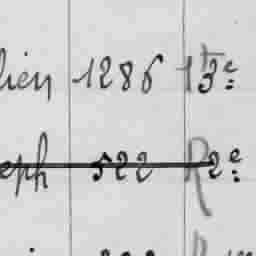 lien 1286 13e:
eph 522 R 2e: